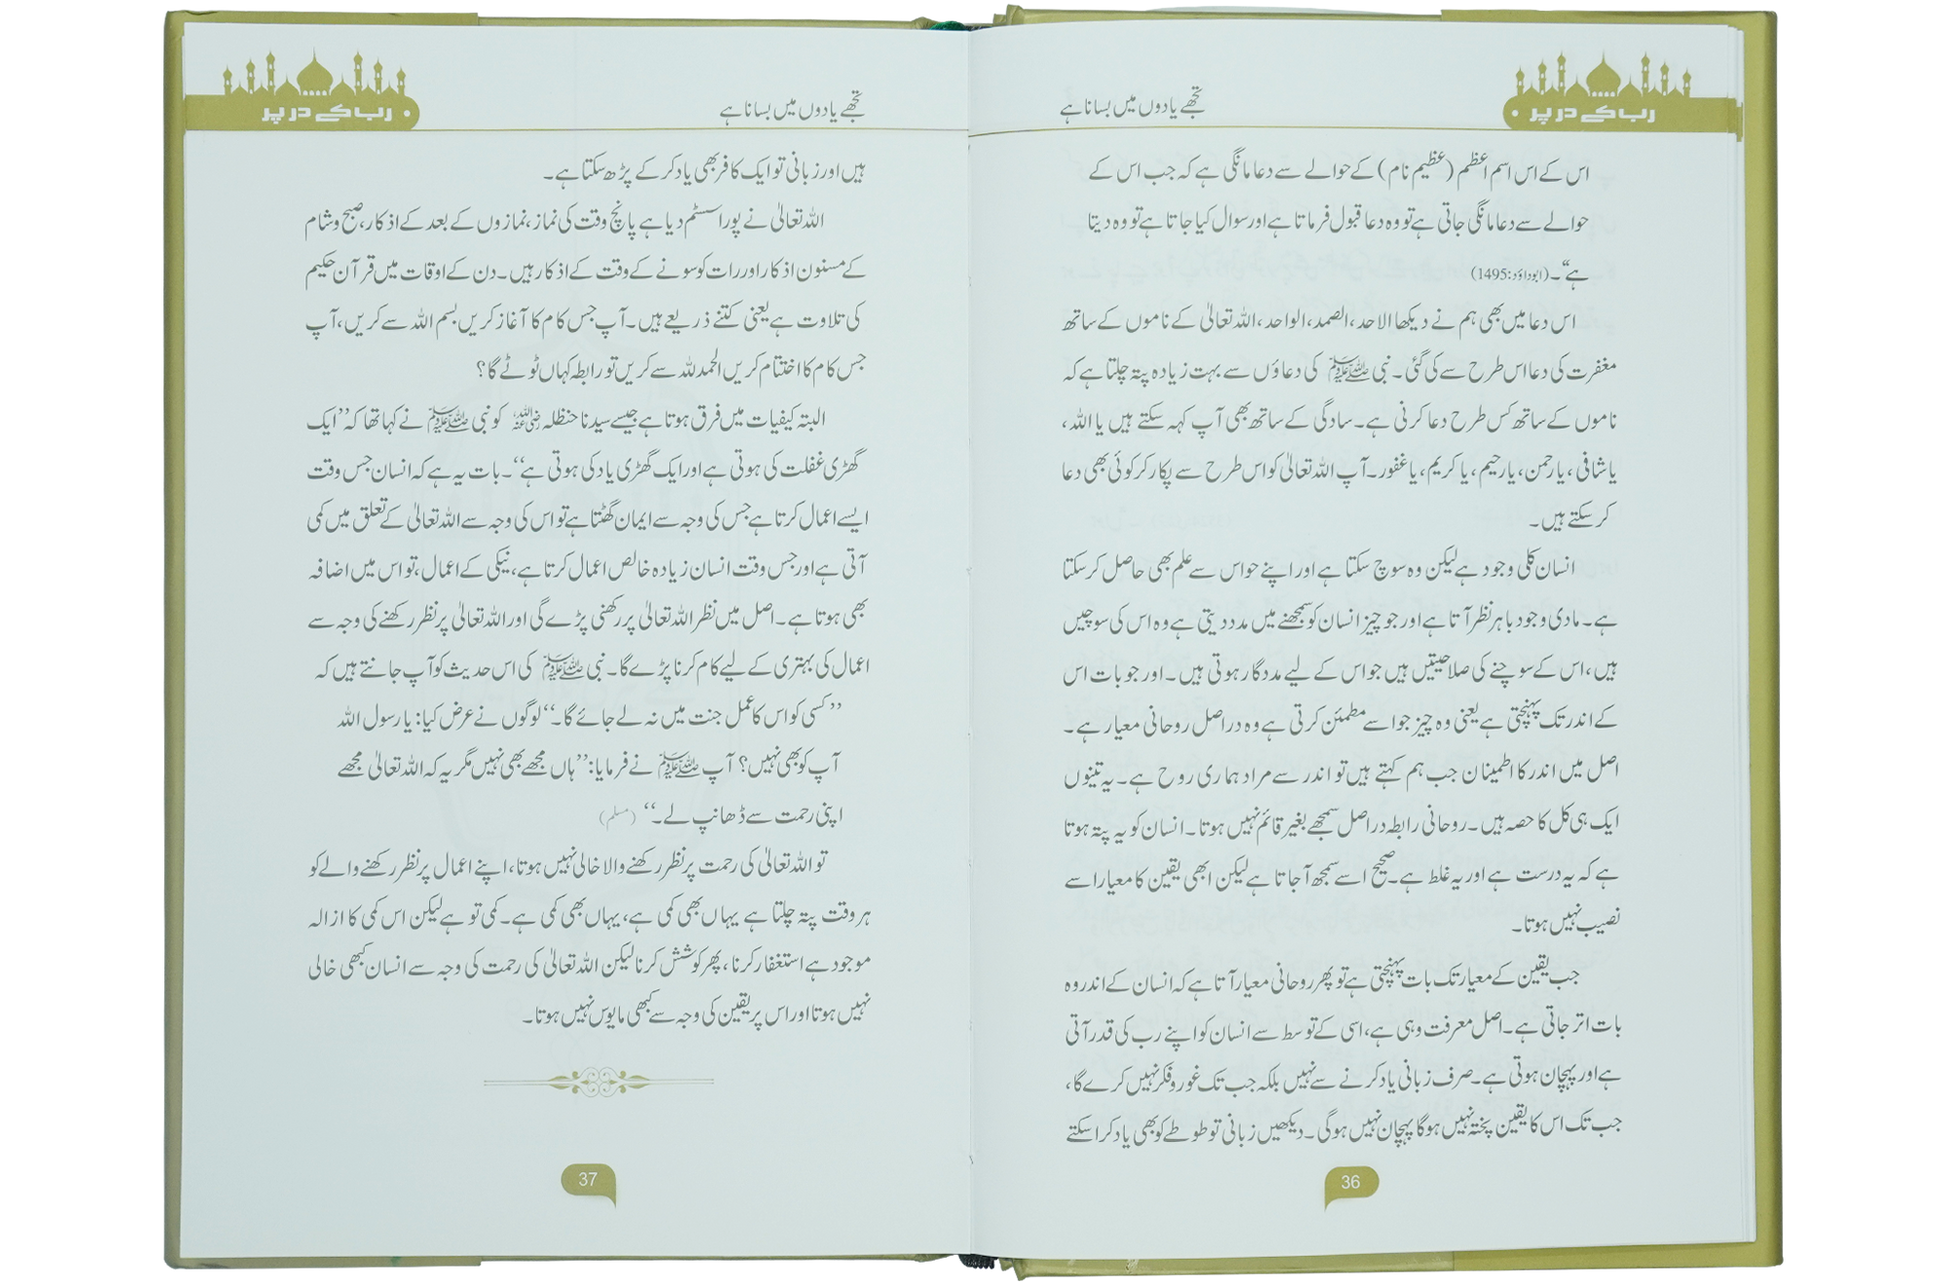 رب کے در پر
تجھے یادوں میں بسانا ہے
اس کے اس اسم اعظم (عظیم نام) کے حوالے سے دعا مانگی ہے کہ جب اس کے
حوالے سے دعا مانگی جاتی ہے تو وہ دعا قبول فرماتا ہے اور سوال کیا جاتا ہے تو وہ دیتا
ہے“۔ (ابوداؤد:1495)
اس دعا میں بھی ہم نے دیکھا الاحد، الصمد، الواحد، اللہ تعالیٰ کے ناموں کے ساتھ
مغفرت کی دعا اس طرح سے کی گئی۔ نبی ﷺ کی دعاؤں سے بہت زیادہ پتہ چلتا ہے کہ
ناموں کے ساتھ کس طرح دعا کرنی ہے۔ سادگی کے ساتھ بھی آپ کہہ سکتے ہیں یا اللہ،
یا شافی، یا رحمن، یا رحیم، یا کریم، یا غفور۔ آپ اللہ تعالیٰ کو اس طرح سے پکار کر کوئی بھی دعا
کر سکتے ہیں۔
انسان کلی وجود ہے لیکن وہ سوچ سکتا ہے اور اپنے حواس سے علم بھی حاصل کر سکتا
ہے۔ مادی وجود باہر نظر آتا ہے اور جو چیز انسان کو سمجھنے میں مدد دیتی ہے وہ اس کی سوچیں
ہیں، اس کے سوچنے کی صلاحیتیں ہیں جو اس کے لیے مددگار ہوتی ہیں۔ اور جو بات اس
کے اندر تک پہنچتی ہے یعنی وہ چیز جو اسے مطمئن کرتی ہے وہ دراصل روحانی معیار ہے۔
اصل میں اندر کا اطمینان جب ہم کہتے ہیں تو اندر سے مراد ہماری روح ہے۔ یہ تینوں
ایک ہی کل کا حصہ ہیں۔ روحانی رابطہ دراصل سمجھے بغیر قائم نہیں ہوتا۔ انسان کو یہ پتہ ہوتا
ہے کہ یہ درست ہے اور یہ غلط ہے۔ صحیح اسے سمجھ آجاتا ہے لیکن ابھی یقین کا معیار اسے
نصیب نہیں ہوتا۔
جب یقین کے معیار تک بات پہنچتی ہے تو پھر روحانی معیار آتا ہے کہ انسان کے اندر وہ
بات اتر جاتی ہے۔ اصل معرفت وہی ہے، اسی کے توسط سے انسان کو اپنے رب کی قدر آتی
ہے اور پہچان ہوتی ہے۔ صرف زبانی یاد کرنے سے نہیں بلکہ جب تک غور و فکر نہیں کرے گا،
جب تک اس کا یقین پختہ نہیں ہوگا پہچان نہیں ہوگی۔ دیکھیں زبانی تو طوطے کو بھی یاد کرا سکتے
36
تجھے یادوں میں بسانا ہے
رب کے در پر
ہیں اور زبانی تو ایک کافر بھی یاد کر کے پڑھ سکتا ہے۔
اللہ تعالیٰ نے پورا سسٹم دیا ہے پانچ وقت کی نماز، نمازوں کے بعد کے اذکار، صبح و شام
کے مسنون اذکار اور رات کو سونے کے وقت کے اذکار ہیں۔ دن کے اوقات میں قرآن حکیم
کی تلاوت ہے یعنی کتنے ذریعے ہیں۔ آپ جس کام کا آغاز کریں بسم اللہ سے کریں، آپ
جس کام کا اختتام کریں الحمدللہ سے کریں تو رابطہ کہاں ٹوٹے گا؟
البتہ کیفیات میں فرق ہوتا ہے جیسے سیدنا حنظلہ رضی اللہ عنہ کو نبی ﷺ نے کہا تھا کہ ’’ایک
گھڑی غفلت کی ہوتی ہے اور ایک گھڑی یاد کی ہوتی ہے‘‘۔ بات یہ ہے کہ انسان جس وقت
ایسے اعمال کرتا ہے جس کی وجہ سے ایمان گھٹتا ہے تو اس کی وجہ سے اللہ تعالیٰ کے تعلق میں کمی
آتی ہے اور جس وقت انسان زیادہ خالص اعمال کرتا ہے، نیکی کے اعمال، تو اس میں اضافہ
بھی ہوتا ہے۔ اصل میں نظر اللہ تعالیٰ پر رکھنی پڑے گی اور اللہ تعالیٰ پر نظر رکھنے کی وجہ سے
اعمال کی بہتری کے لیے کام کرنا پڑے گا۔ نبی ﷺ کی اس حدیث کو آپ جانتے ہیں کہ
’’کسی کو اس کا عمل جنت میں نہ لے جائے گا۔‘‘ لوگوں نے عرض کیا: یا رسول اللہ
آپ کو بھی نہیں؟ آپ ﷺ نے فرمایا: ’’ہاں مجھے بھی نہیں مگر یہ کہ اللہ تعالیٰ مجھے
اپنی رحمت سے ڈھانپ لے۔‘‘ (مسلم)
تو اللہ تعالیٰ کی رحمت پر نظر رکھنے والا خالی نہیں ہوتا، اپنے اعمال پر نظر رکھنے والے کو
ہر وقت پتہ چلتا ہے یہاں بھی کمی ہے، یہاں بھی کمی ہے۔ کمی تو ہے لیکن اس کمی کا ازالہ
موجود ہے استغفار کرنا، پھر کوشش کرنا لیکن اللہ تعالیٰ کی رحمت کی وجہ سے انسان کبھی خالی
نہیں ہوتا اور اس پر یقین کی وجہ سے کبھی مایوس نہیں ہوتا۔
37